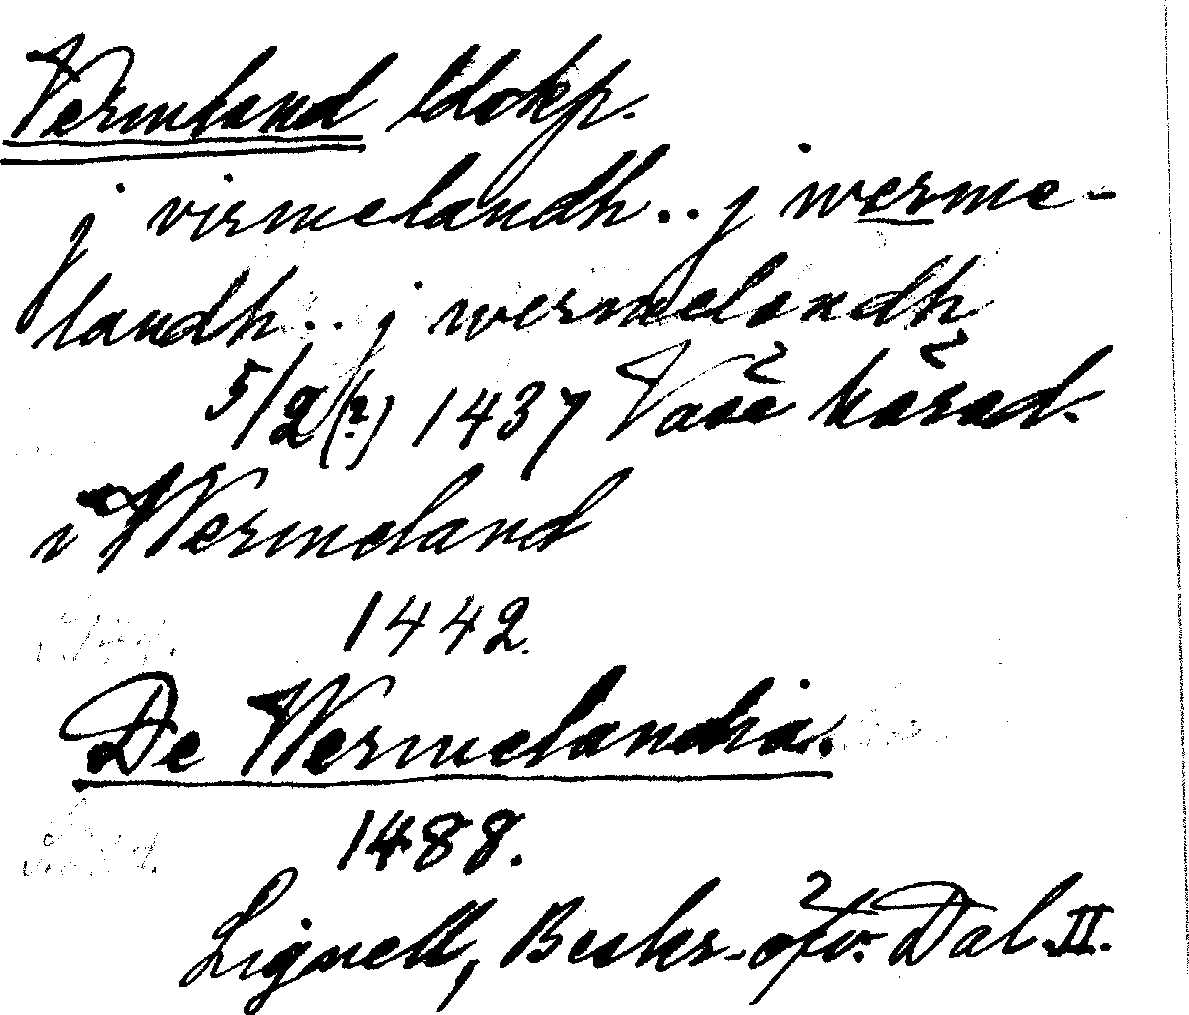 Vermland ldskp.
j virmelandh.. j werme-
landh.. j wermelandh
5/2(?) 1437 Vase härad.
i Wermeland
1442.
De Wermelandia.
1488.
Lignell, Beskr. öfv. Dal. II.